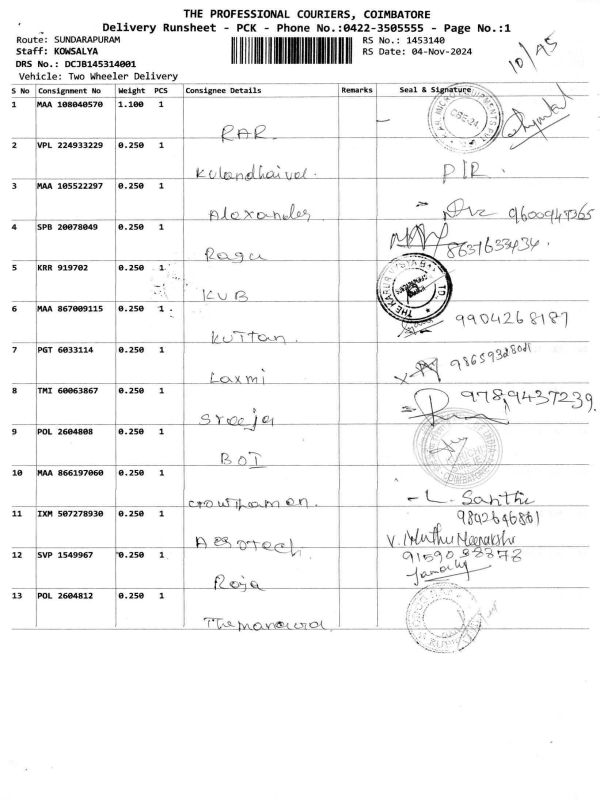 THE PROFESSIONAL COURIERS, COIMBATORE
Delivery Runsheet - PCK - Phone No.:0422-3505555 - Page No.:1
10/45
Route: SUNDARAPURAM
RS No.: 1453140
Staff: KOWSALYA
RS Date: 04-Nov-2024
DRS No.: DCJB145314001
Vehicle: Two Wheeler Delivery
S No Consignment No Weight PCS Consignee Details Remarks Seal & Signature
1 MAA 108040570 1.100 1 RAR
2 VPL 224933229 0.250 1 Kulandhaivel. P/R.
3 MAA 105522297 0.250 1 Alexander 9600947365
4 SPB 20078049 0.250 1 Ragu 8637633434.
5 KRR 919702 0.250 1 KVB
6 MAA 867009115 0.250 1 Kuttan. 9904268187
7 PGT 6033114 0.250 1 Laxmi 9865932802
8 TMI 60063867 0.250 1 Sreeja 9789437239.
9 POL 2604808 0.250 1 BOI
10 MAA 866197060 0.250 1 Gowthaman. - L. Santhi
9892646861
11 IXM 507278930 0.250 1 Aerotech. V. Muthu Meenakshi
9159038378
12 SVP 1549967 0.250 1 Roja
13 POL 2604812 0.250 1